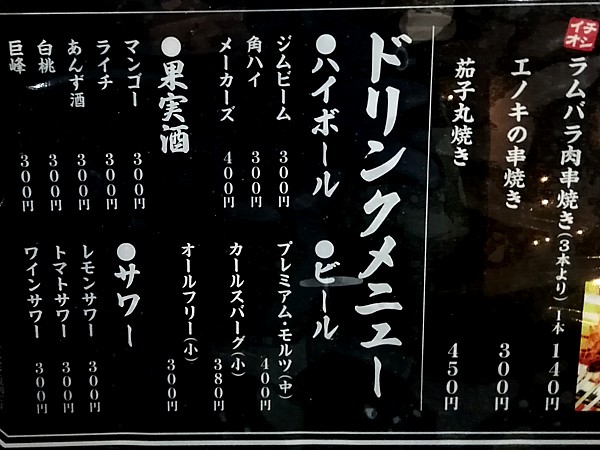 イチオシ
ラムバラ肉串焼き(3本より) 1本 140円
エノキの串焼き 300円
茄子丸焼き 450円
ドリンクメニュー
●ハイボール
ジムビーム 300円
角ハイ 300円
メーカーズ 400円
●果実酒
マンゴー 300円
ライチ 300円
あんず酒 300円
白桃 300円
巨峰 300円
●ビール
プレミアム・モルツ(中) 400円
カールスバーグ(小) 380円
オールフリー(小) 300円
●サワー
レモンサワー 300円
トマトサワー 300円
ワインサワー 300円